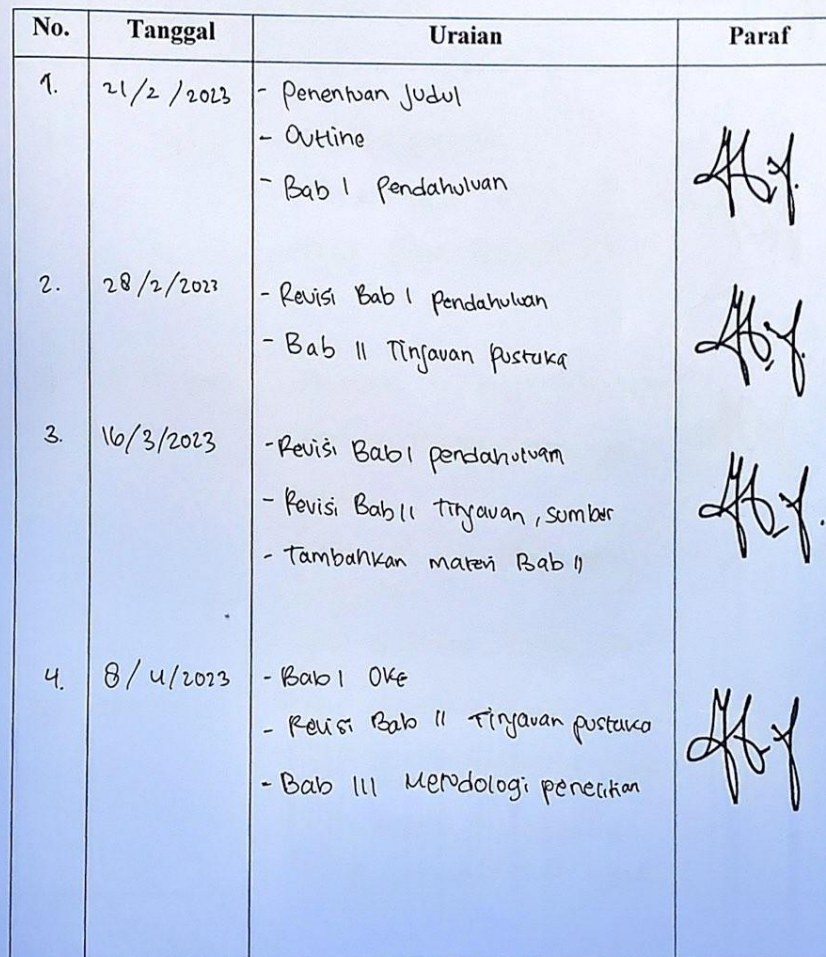 No. Tanggal Uraian Paraf
1. 21/2/2023 - Penentuan Judul
- Outline
- Bab I Pendahuluan
2. 28/2/2023 - Revisi Bab I Pendahuluan
- Bab II Tinjauan Pustaka
3. 16/3/2023 - Revisi Bab I pendahuluan
- Revisi Bab II tinjauan, sumber
- Tambahkan materi Bab II
4. 8/4/2023 - Bab I Oke
- Revisi Bab II Tinjauan pustaka
- Bab III Metodologi penelitian